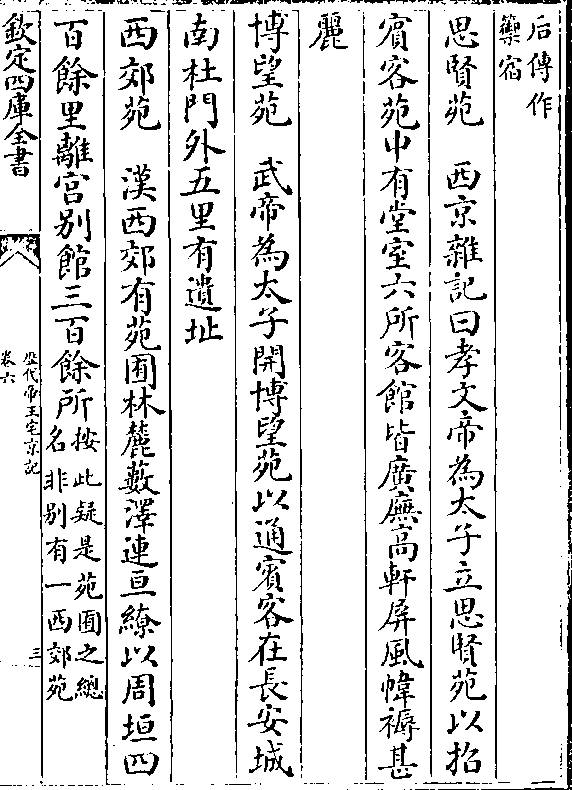 后傳作
籞宿
思賢苑　西京雜記曰孝文帝為太子立思賢苑以招
賓客苑中有堂室六所客館皆廣廡高軒屏風幃褥甚
麗
博望苑　武帝為太子開博望苑以通賓客在長安城
南杜門外五里有遺址
西郊苑　漢西郊有苑囿林麓藪澤連亘繚以周垣四
百餘里離宮别館三百餘所按此疑是苑囿之總
名非别有一西郊苑
欽定四庫全書
歴代帝王宅京記
卷六
三